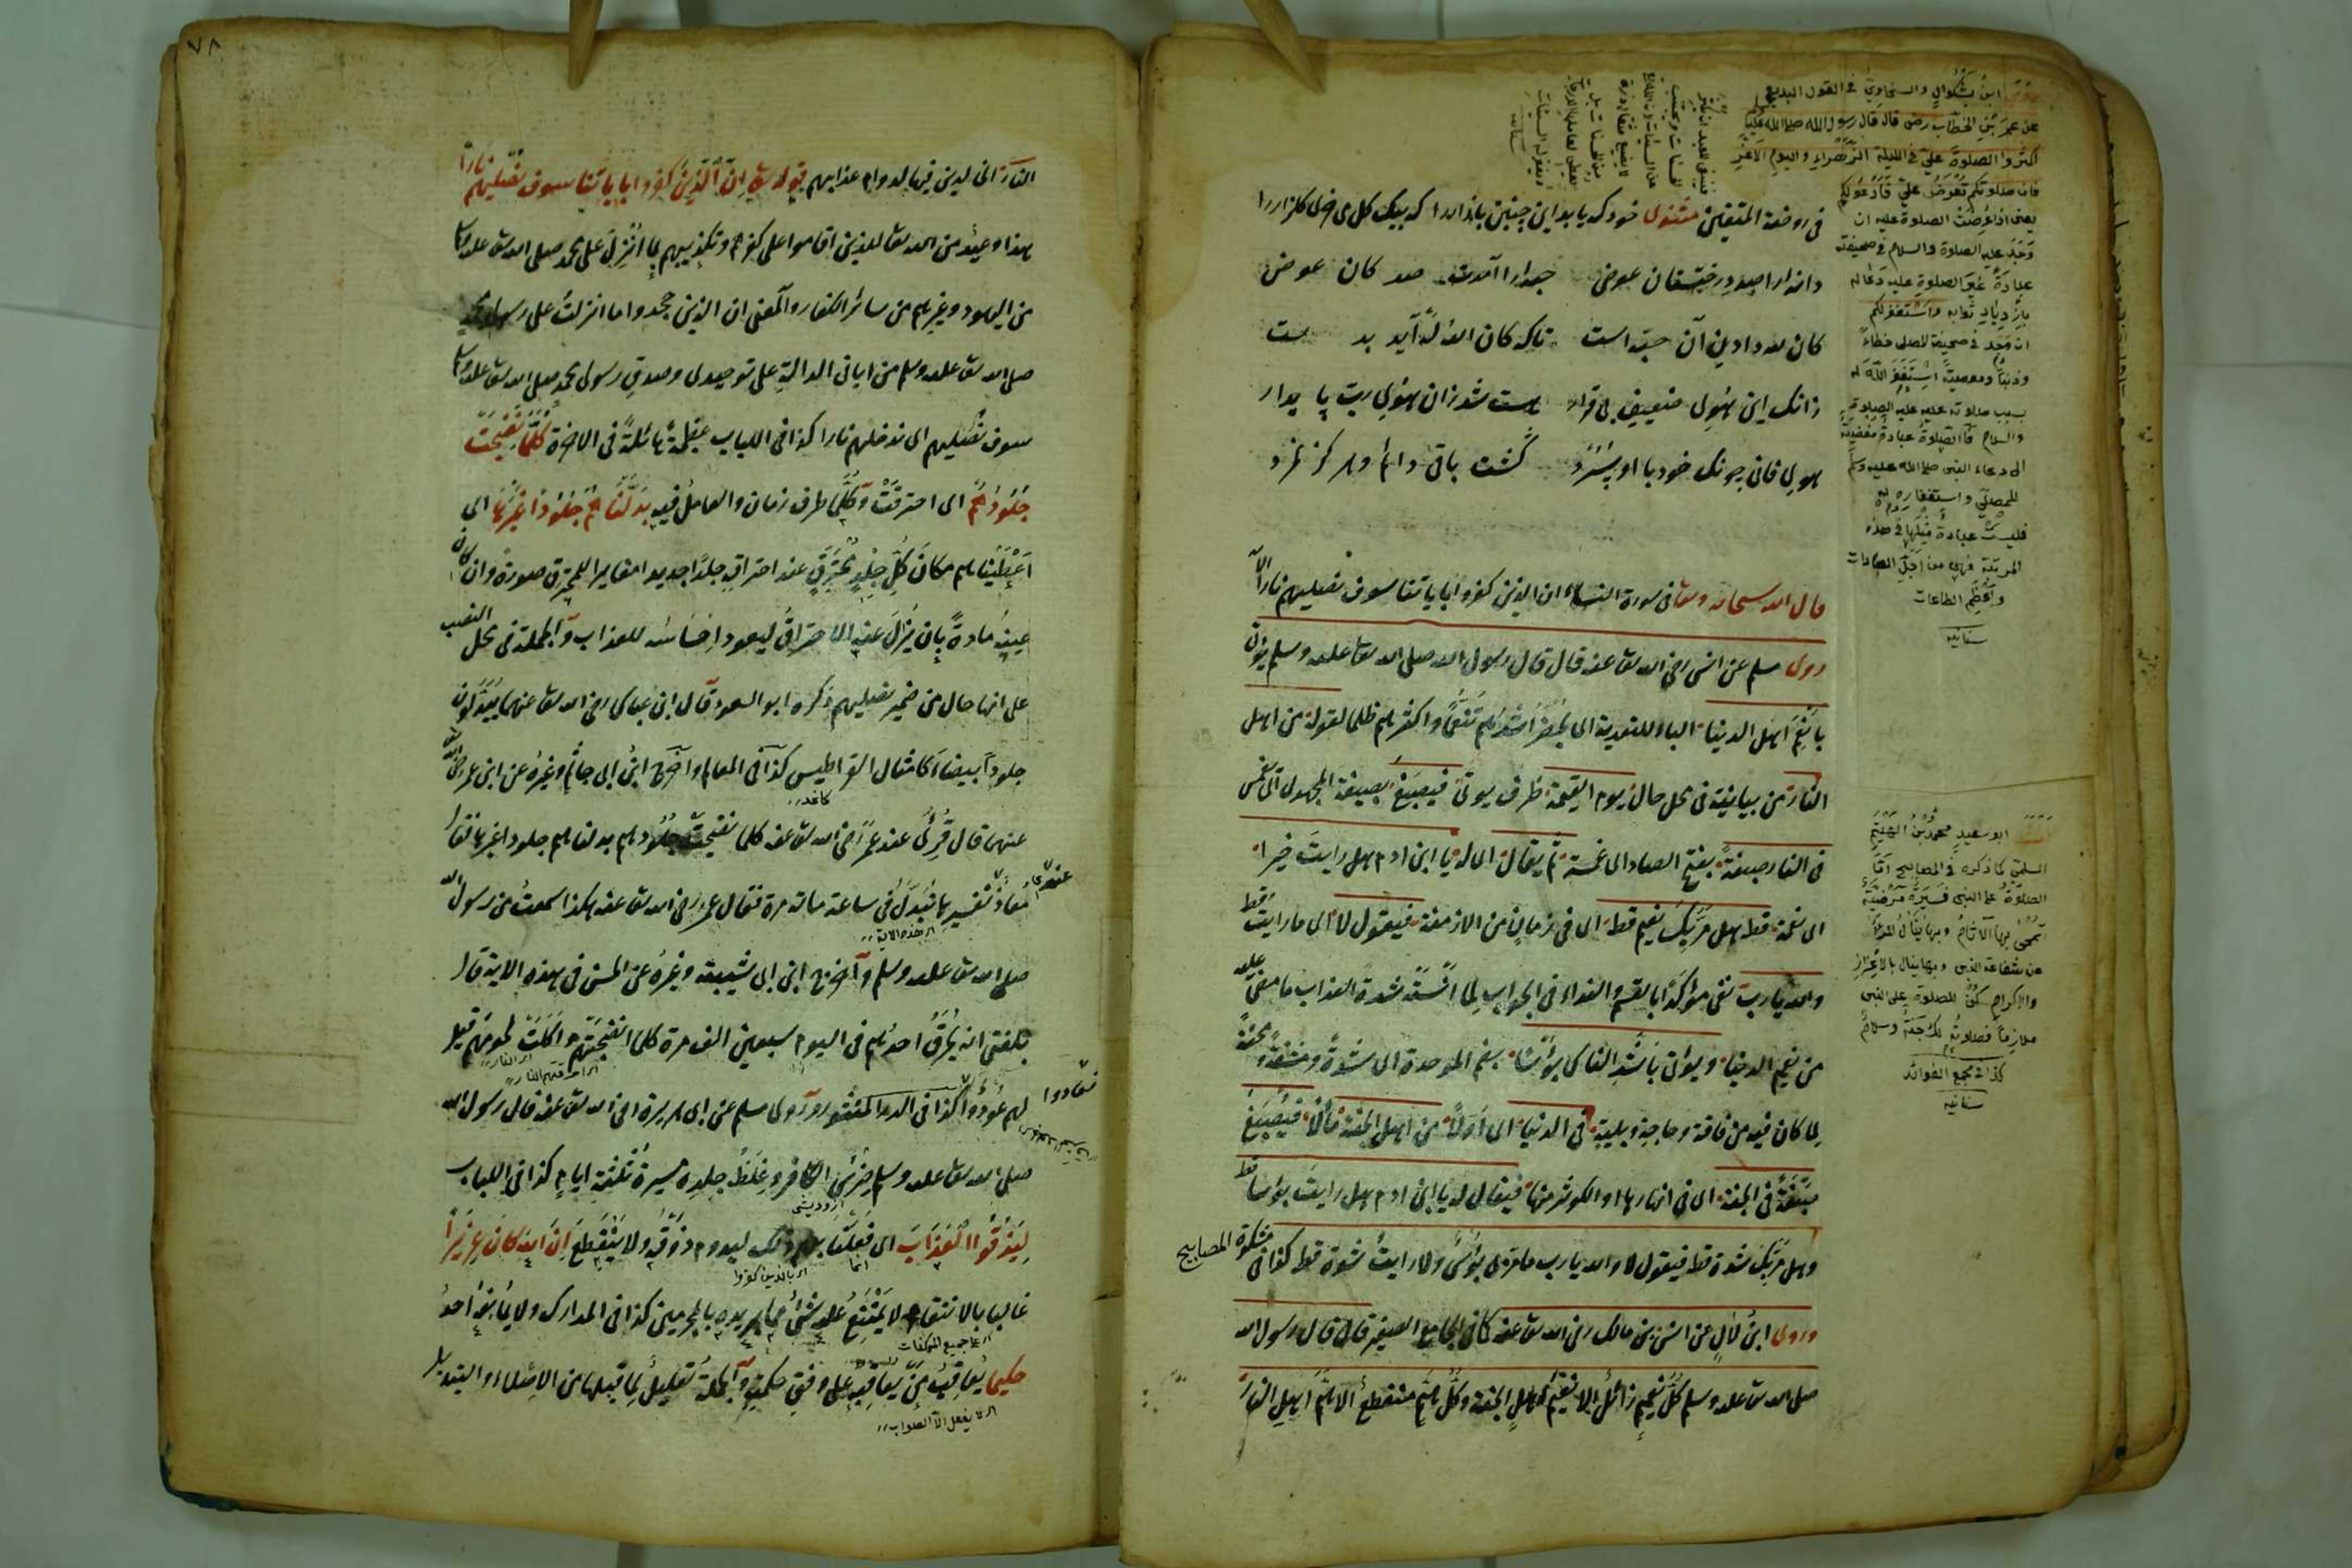 في روضة المتقين مثنوى خود كه يابد اين چنين بازار را كه بيك كل مى خرى كلزار را
دانه را صد درختستان عوض حبه را آمدت صد كان عوض
كان لله دادن آن حبه است تاكه كان الله له آيد بدست
زانك اين هوى ضعيف بى قرار هست شد زان هوى رب پايدار
هوى فانى چونك خود با او سپرد گشت باقى دائم و هركز نمرد
قال الله سبحانه وتعا في سورة النساء ان الذين كفروا باياتنا سوف نصليهم نارا الآ
روى مسلم عن انس رضي الله تعا عنه قال قال رسول الله صلى الله تعا عليه وسلم يؤتى
بانعم اهل الدنيا الباء للتعدية اى يحضر اشدهم تنعما واكثرهم ظلما لقوله من اهل
النار من بيانية في محل حال يوم القيمة ظرف يوتى فيصبغ بصيغة المجهول اى يغمس
في النار صبغة بفتح الصاد اى غمسة ثم يقال اى له يا ابن ادم هل رايت خيرا
اى نعمة قط هل مر بك نعيم قط اى في زمان من الازمنة فيقول لا اى ما رايت قط
والله يا رب نفى مؤكد بالقسم والنداء في الجواب لما انسته شدة العذاب ما مضى عليه
من نعيم الدنيا ويؤتى باشد الناس بؤسا بضم الموحدة اى شدة ومشقة ومحنة
لما كان فيه من فاقة وحاجة وبلية في الدنيا اى اولا من اهل الجنة مالا فيصبغ
صبغة في الجنة اى في انهارها او الكوثر منها فيقال له يا ابن ادم هل رايت بؤسا قط
وهل مر بك شدة قط فيقول لا والله يا رب ما مر بى بؤس ولا رايت شدة قط كذا في مشكوة المصابيح
وروى ابن لال عن انس بن مالك رضي الله تعا عنه كما في الجامع الصغير قال قال رسول الله
صلى الله تعا عليه وسلم كل نعيم زائل الا نعيم اهل الجنة وكل هم منقطع الا هم اهل النار
روى ابن بشكوال والسخاوي في القول البديع
عن عمر بن الخطاب رض قال قال رسول الله صلى الله عليه
اكثروا الصلوة علي في الليلة الزهراء واليوم الاغر
فان صلوتكم تعرض علي فادعو لكم
يعنى اذا عرضت الصلوة عليه ان
وجد عليه الصلوة والسلام في صحيفة
عبادة غير الصلوة عليه دعا له
بازدياد ثوابه واستغفر لكم
ان وجد في صحيفة المصلى خطاء
وذنبا ومعصية استغفر الله له
بسبب صلوته عليه عليه الصلوة
والسلام فالصلوة عبادة مفضية
الى دعاء النبى صلى الله عليه وسلم
للمصلى واستغفاره له
فليست عبادة مثلها في هذه
المرتبة فهى من اجل العبادات
واعظم الطاعات
سنانيه
ابو سعيد محمد بن الهيثم
السلمى كما ذكره في المصابيح اما
الصلوة على النبى فسيرة مرضية
تمحى بها الآثام وبها ينال المرء
عن شفاعة النبى وبها ينال بالاعزاز
والاكرام كن للصلوة على النبى
ملازما فصلوته لك جنة وسلام
كذا في مجمع الفوائد
سنانيه
٧٨
النار اى ليس فيها لدوام عذابهم قوله تعا ان الذين كفروا باياتنا سوف نصليهم نارا
هذا وعيد من الله تعا للذين اقاموا على كفرهم وتكذيبهم بما انزل على محمد صلى الله تعا عليه وسلم
من اليهود وغيرهم من سائر الكفار والمعنى ان الذين جحدوا ما انزلت على رسولى محمد
صلى الله تعا عليه وسلم من اياتى الدالة على توحيدى وصدق رسولى محمد صلى الله تعا عليه وسلم
سوف نصليهم اى ندخلهم نارا كذا في اللباب عظيمة هائلة في الاخرة كلما نضجت
جلودهم اى احترقت وكلما ظرف زمان والعامل فيه بدلناهم جلودا غيرها اى
اعطيناهم مكان كل جلد محترق عند احتراقه جلدا جديدا مغايرا للمحترق صورة وان كان
عينه مادة بان يزال عنه الاحتراق ليعود احساسه للعذاب والجملة في محل النصب
على انها حال من ضمير نصليهم ذكره ابو السعود قال ابن عباس رضي الله تعا عنهما يبدلون
جلودا بيضاء كامثال القراطيس كذا في المعالم واخرج ابن ابى حاتم وغيره عن ابن عمر رضي الله تعا
كاغد
عنهما قال قرئ عند عمر رضي الله تعا عنه كلما نضجت جلودهم بدلناهم جلودا غيرها فقال
معاذ عندى تفسيرها تبدل في ساعة مائة مرة فقال عمر رضي الله تعا عنه هكذا سمعت من رسول الله
اى هذه الاية
صلى الله تعا عليه وسلم واخرج ابن ابى شيبة وغيره عن الحسن في هذه الاية قال
بلغنى انه يحرق احدهم في اليوم سبعين الف مرة كلما انضجتهم واكلت لحومهم قيل
اى احرقتهم النار
لهم عودوا فعادوا كذا في الدر المنثور وروى مسلم عن ابى هريرة رضي الله تعا عنه قال رسول الله
صلى الله تعا عليه وسلم ضرس الكافر وغلظ جلده مسيرة ثلثة ايام كذا في اللباب
ليذوقوا العذاب اى فعلنا بهم ذلك ليدوم ذوقه ولا ينقطع ان الله كان عزيزا
اى بالذين كفروا
غالبا بالانتقام لا يمتنع عليه شئ مما يريده بالمجرمين كذا في المدارك ولا يمانعه احد
حكيما يعاقب من يعاقبه على وفق حكمته والجملة تعليل لما قبلها من الاصلاء والتبديل
اى لا يفعل الا الصواب